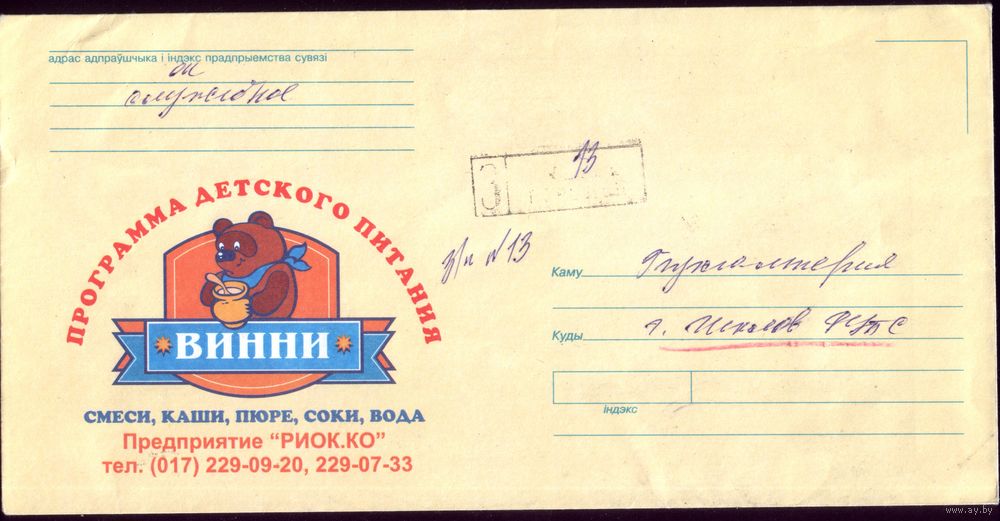 адрас адпраўшчыка і індэкс прадпрыемства сувязі
служебное
З
13
з/п №13
ПРОГРАММА ДЕТСКОГО ПИТАНИЯ
ВИННИ
СМЕСИ, КАШИ, ПЮРЕ, СОКИ, ВОДА
Предприятие “РИОК.КО”
тел. (017) 229-09-20, 229-07-33
Каму Бухгалтерия
Куды г. Шклов РУПС
індэкс
www.ay.by